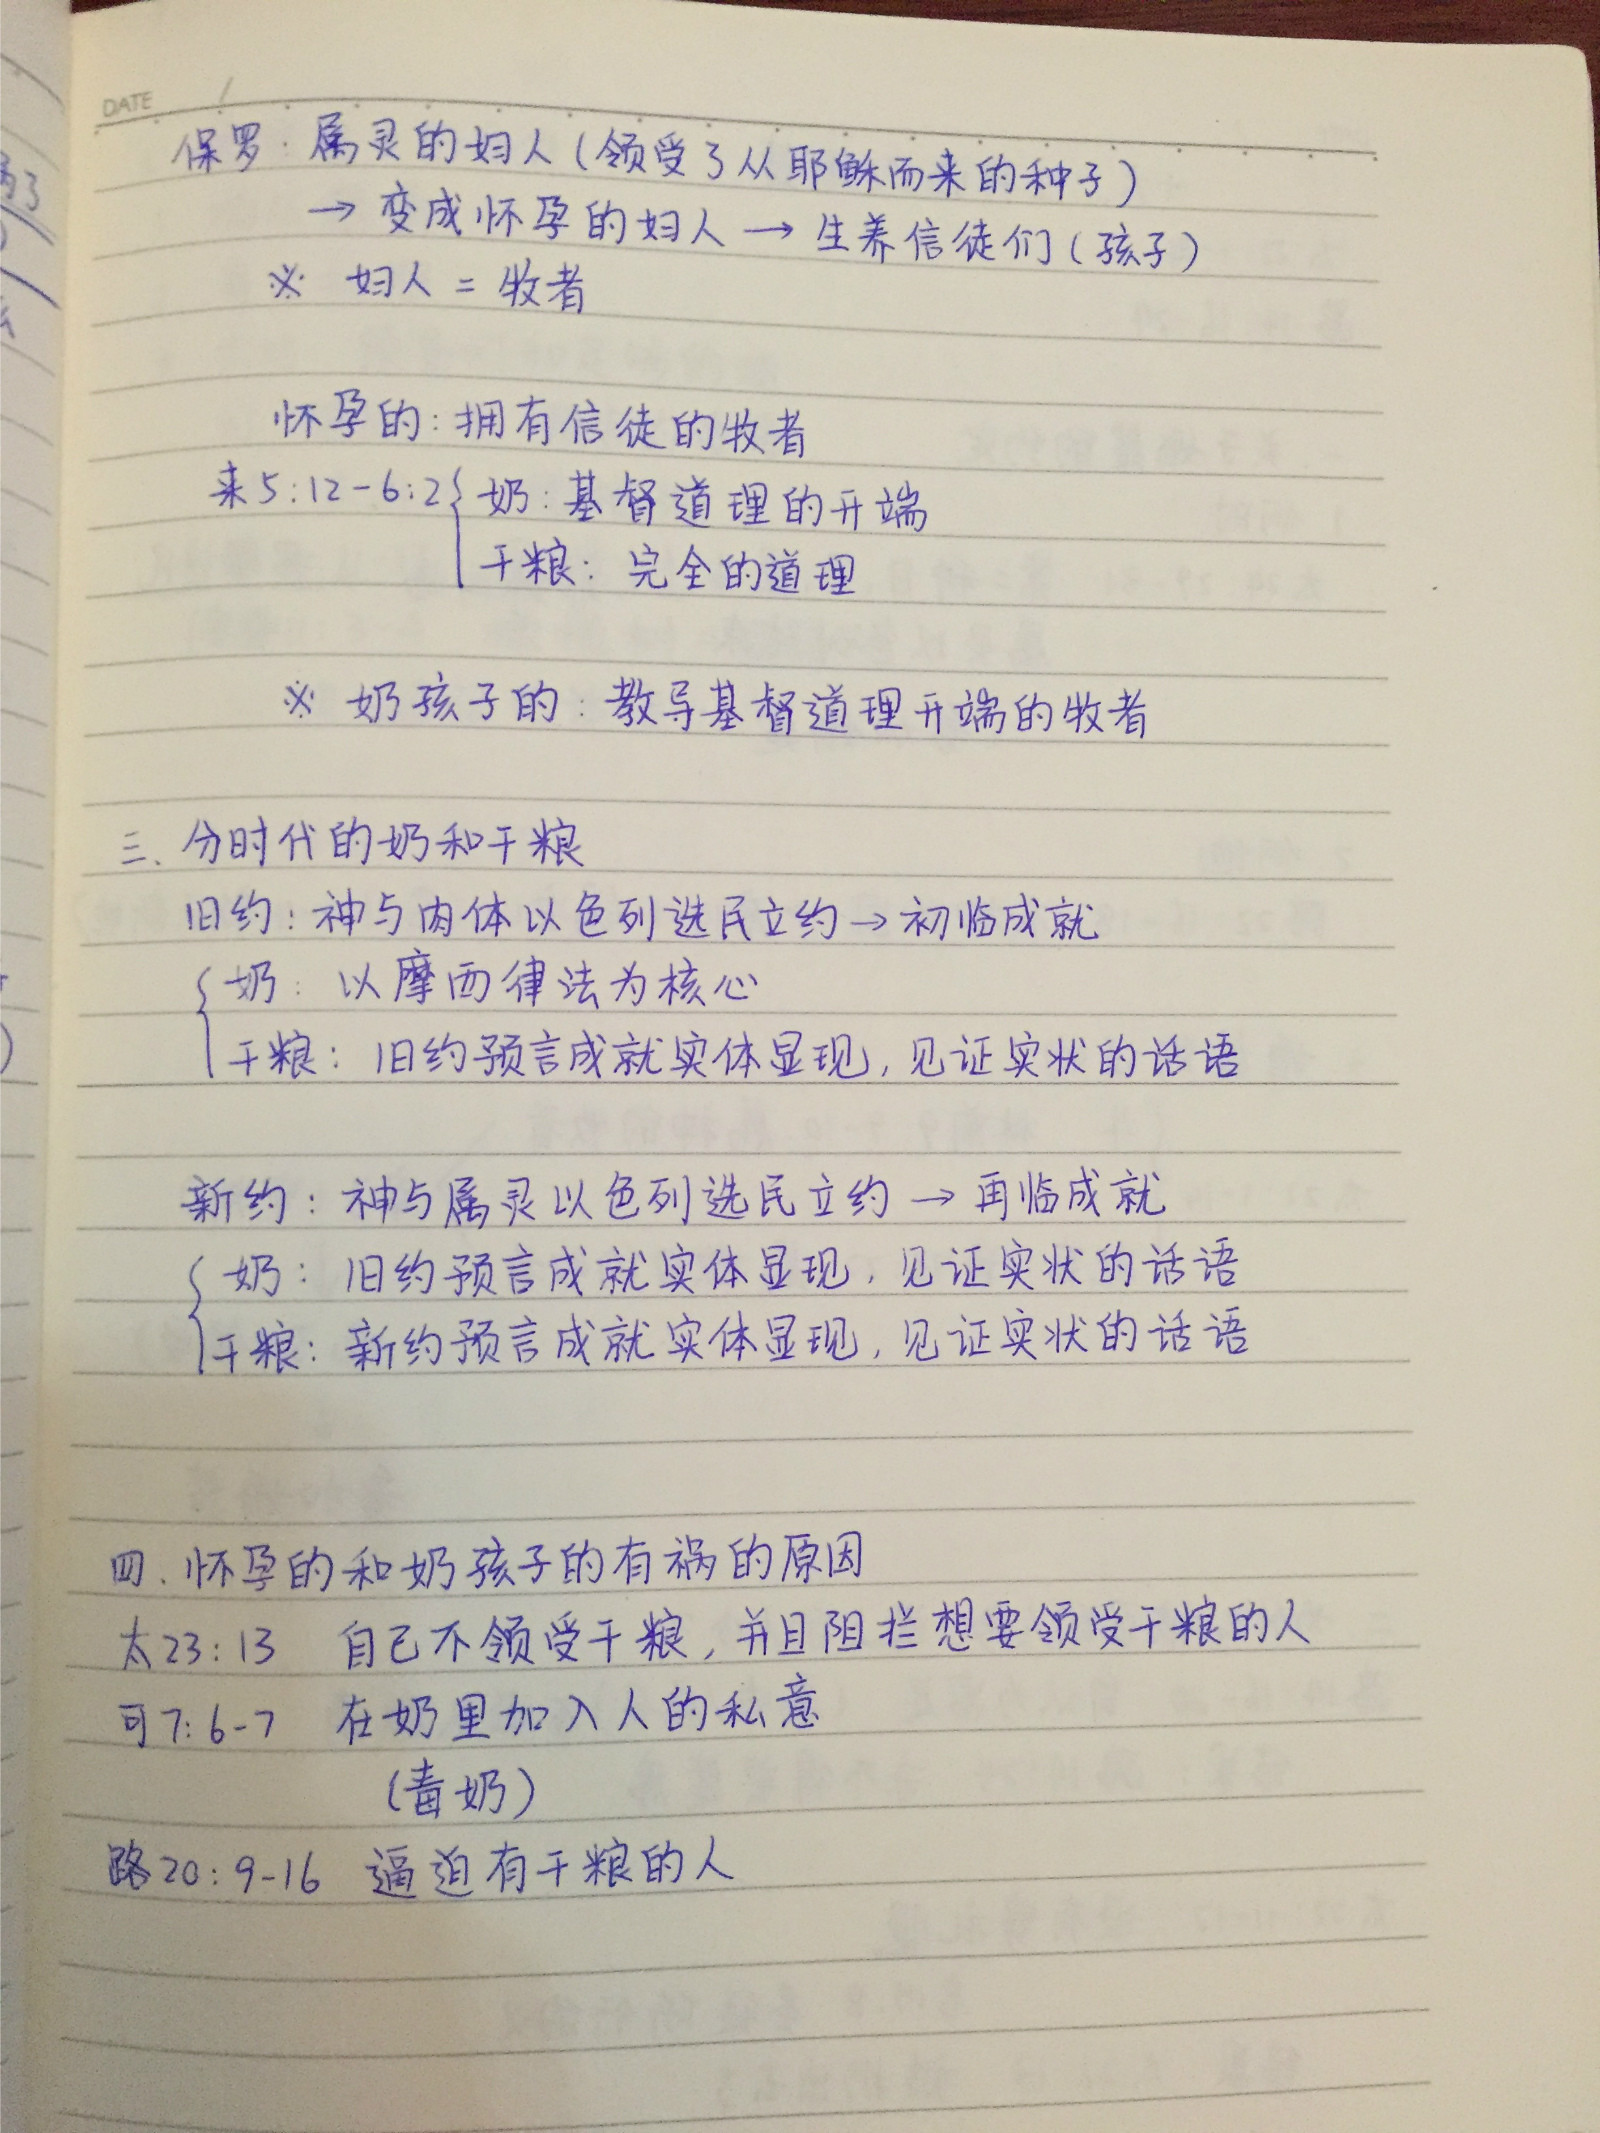 DATE
保罗：属灵的妇人（领受了从耶稣而来的种子）
→ 变成怀孕的妇人 → 生养信徒们（孩子）
※ 妇人 = 牧者
怀孕的：拥有信徒的牧者
来5:12-6:2{ 奶：基督道理的开端
干粮：完全的道理
※ 奶孩子的：教导基督道理开端的牧者
三、分时代的奶和干粮
旧约：神与肉体以色列选民立约→初临成就
{ 奶：以摩西律法为核心
干粮：旧约预言成就实体显现，见证实状的话语
新约：神与属灵以色列选民立约 → 再临成就
{ 奶：旧约预言成就实体显现，见证实状的话语
干粮：新约预言成就实体显现，见证实状的话语
四、怀孕的和奶孩子的有祸的原因
太23:13 自己不领受干粮，并且阻拦想要领受干粮的人
可7:6-7 在奶里加入人的私意
（毒奶）
路20:9-16 逼迫有干粮的人